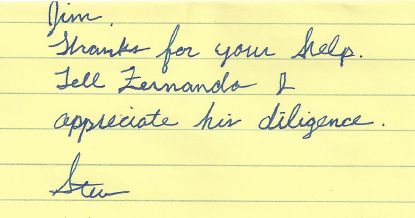 Jim.
Thanks for your help.
Tell Fernando I
appreciate his diligence.
Stew